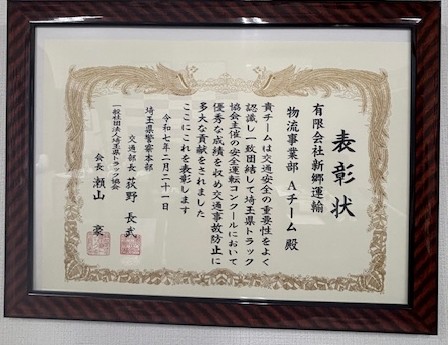 表彰状
有限会社新郷運輸
物流事業部 Aチーム 殿
貴チームは交通安全の重要性をよく
認識し一致団結して埼玉県トラック
協会主催の安全運転コンクールにおいて
優秀な成績を収め交通事故防止に
多大な貢献をされました
ここにこれを表彰します
令和七年二月二十一日
埼玉県警察本部
交通部長 荻野 長武
一般社団法人埼玉県トラック協会
会長 瀬山 豪